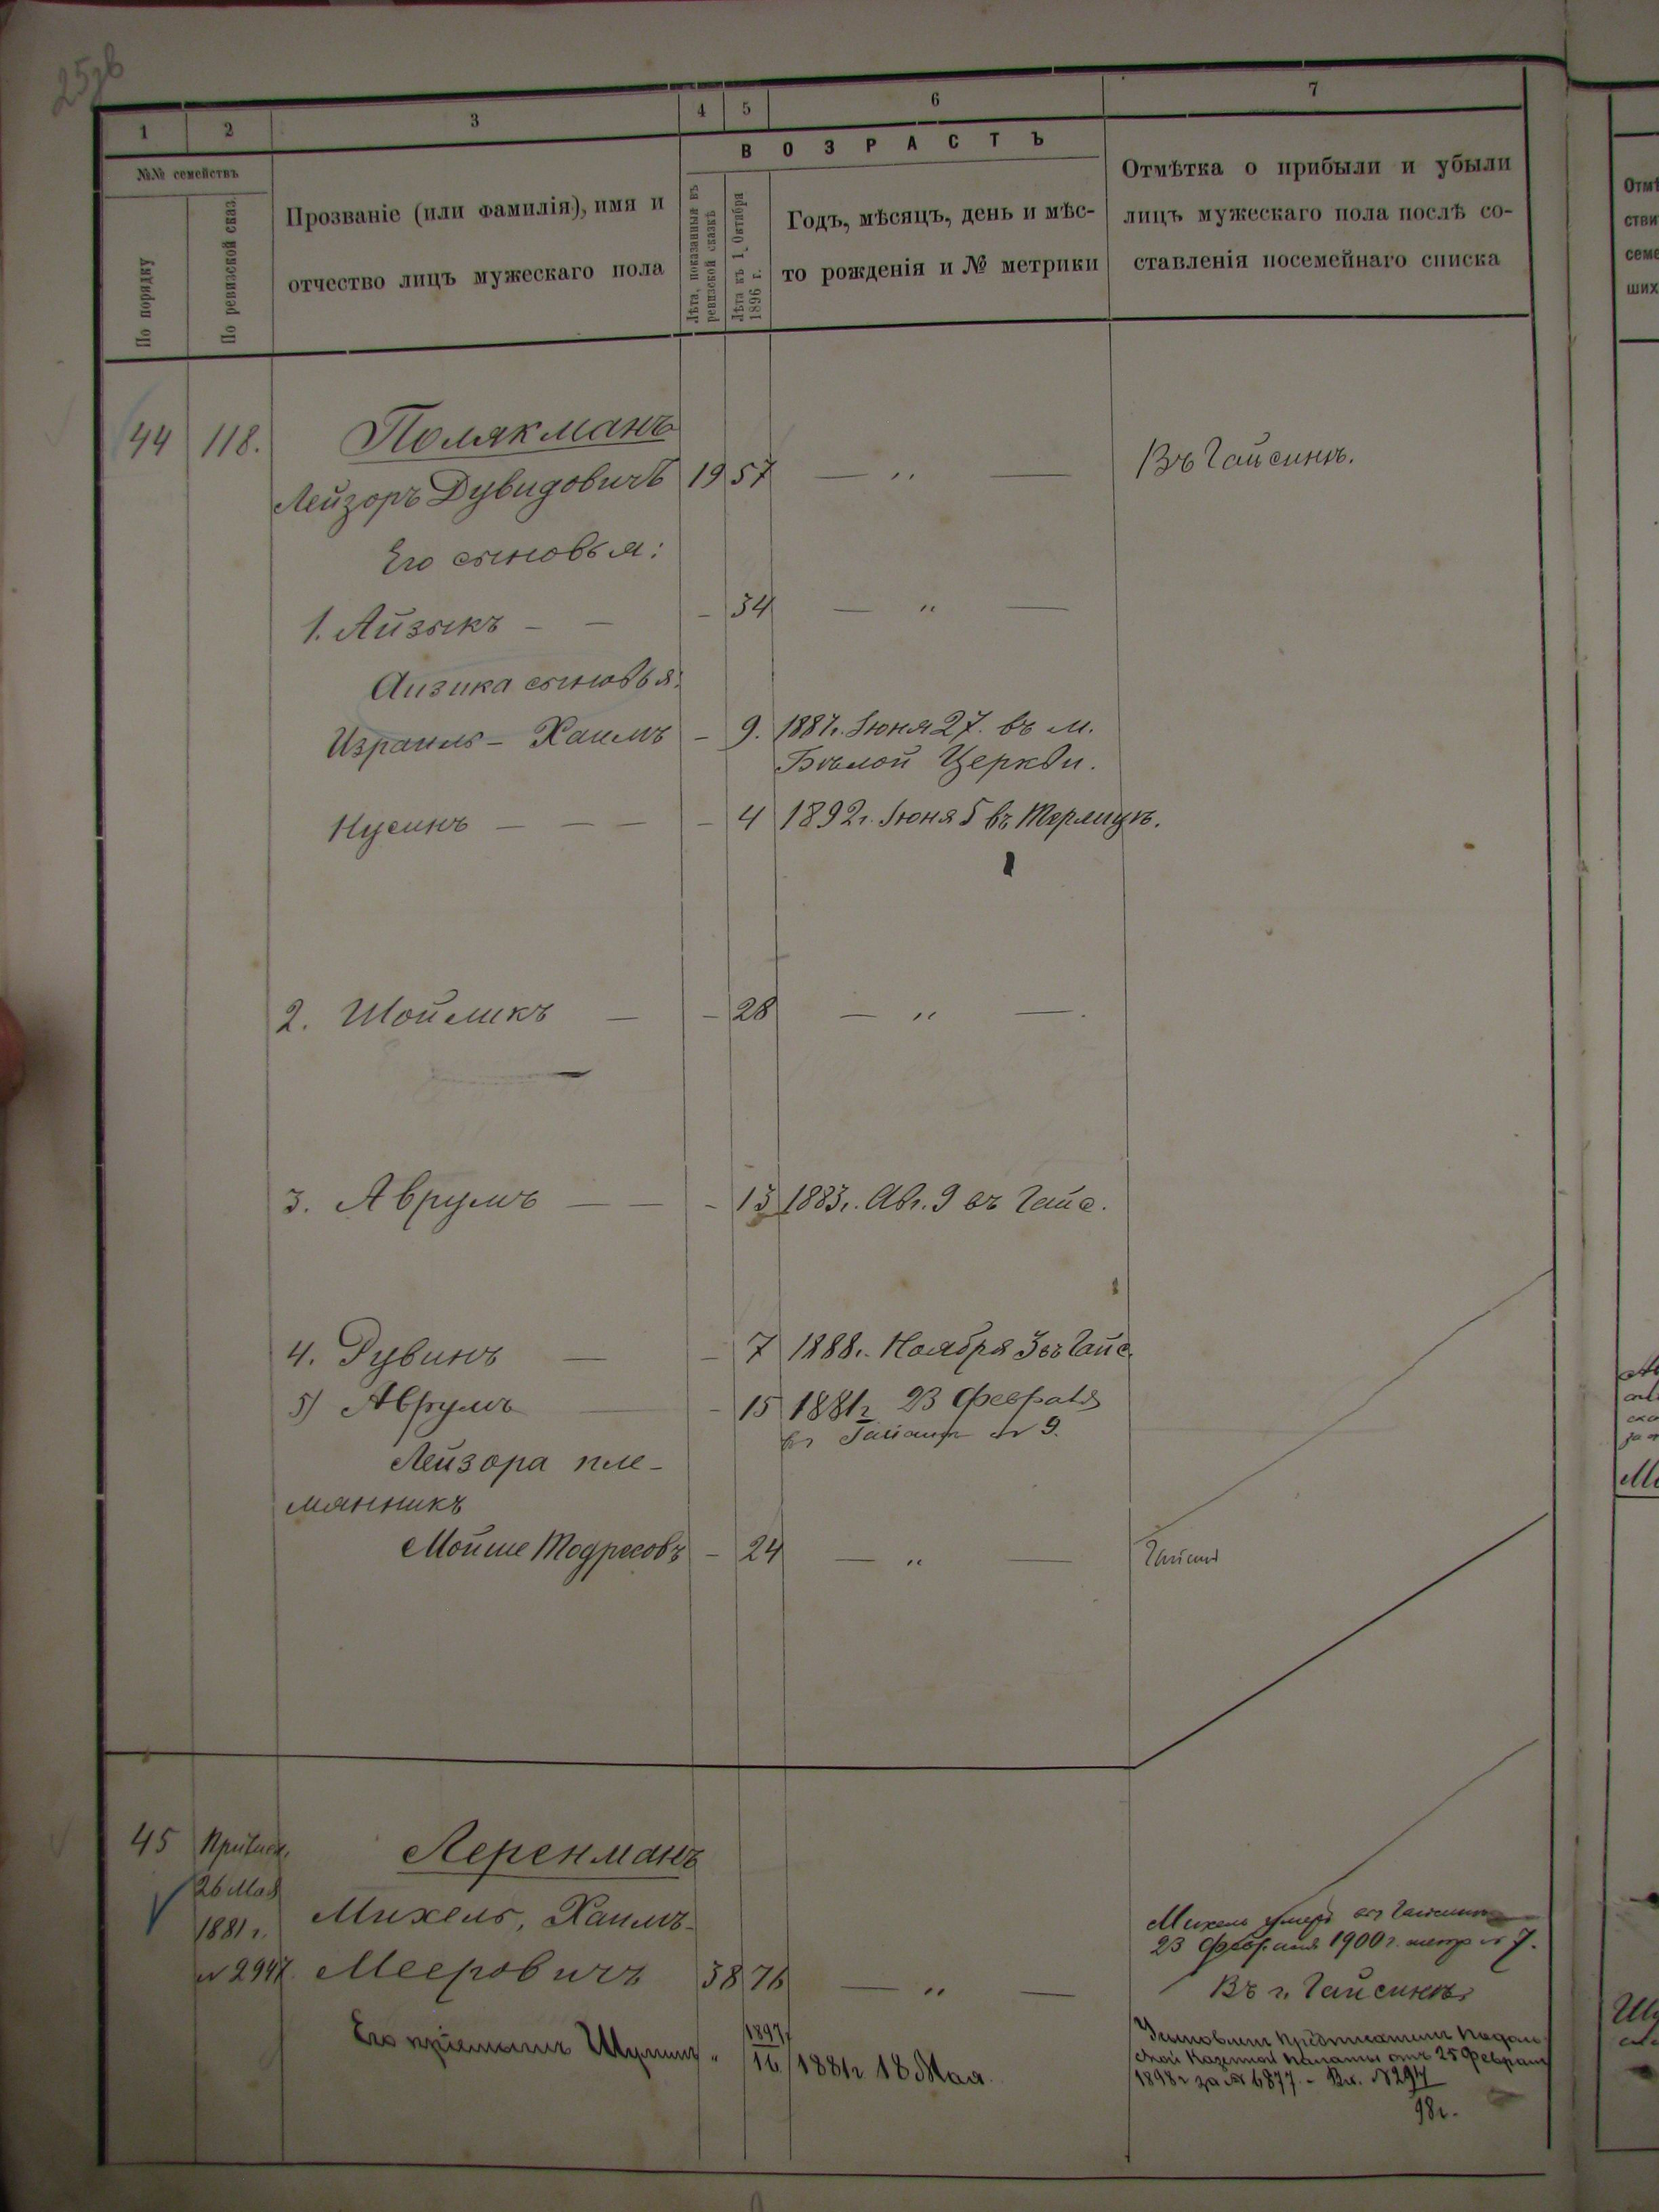 1 2 3 4 5 6 7
№№ семействъ
По порядку
По ревизской сказ.
Прозваніе (или фамилія), имя и
отчество лицъ мужескаго пола
ВОЗРАСТЪ
Лѣта, показанныя въ
ревизской сказкѣ
Лѣта къ 1 Октября
1896 г.
Годъ, мѣсяцъ, день и мѣс-
то рожденія и № метрики
Отмѣтка о прибыли и убыли
лицъ мужескаго пола послѣ со-
ставленія посемейнаго списка
44 118. Поляkманъ
Лейзоръ Дувидовичъ 19 57 — " — Въ Гайсинѣ.
Его сыновья:
1. Айзыкъ — — - 34 — " —
Аизика сыновья:
Израиль - Хаимъ - 9. 1887г. Іюня 27. въ м.
Бѣлой Церкви.
Нусинъ — — — - 4 1892г. Іюня 5 въ Терлицѣ.
2. Шойликъ — - 28 — " —.
3. Аврумъ — — - 13 1883г. Авг. 9 въ Гайс.
4. Рувинъ — - 7 1888г. Ноября 3 въ Гайс.
5) Аврумъ — - 15 1881г 23 февраля
въ № 9.
Лейзора пле-
мянникъ
Мойше Тодресовъ - 24 — " —
45 Леренманъ
26 Мая
1881 г. Михель, Хаимъ-
№ 2947. Мееровичъ 38 76 — " —
Михель умеръ въ
23 февраля 1900 г. метр № 7.
Въ г. Гайсинѣ
Его " 1897 16 1881г 18 Мая.
Казенной Палаты отъ 25 Февраля
1898г за № 6877. - Вх. № 294
98г.